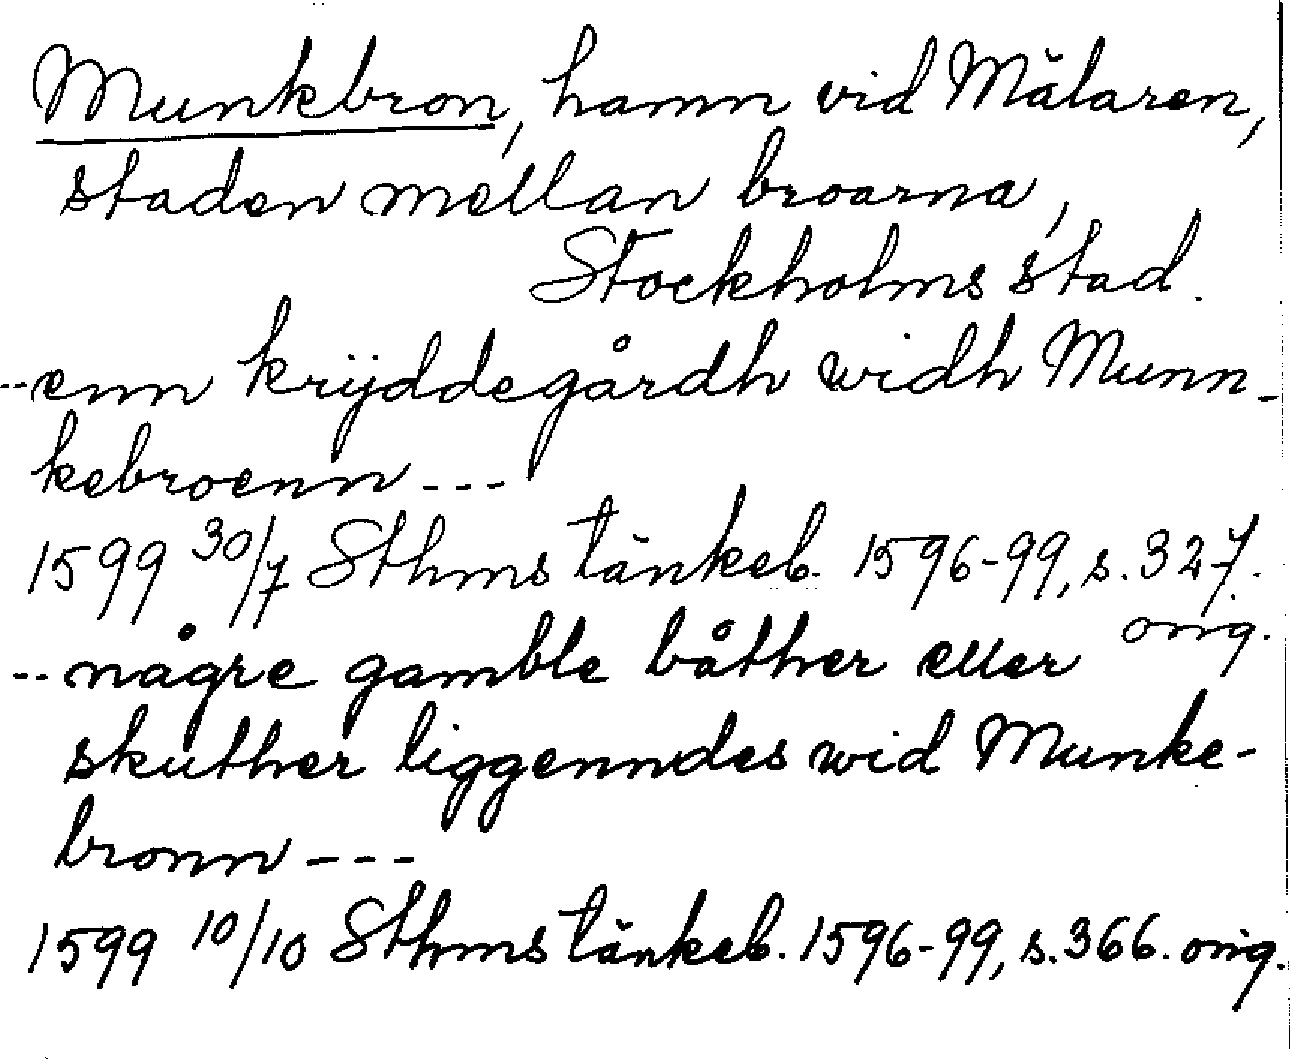 Munkbron, hamn vid Mälaren,
staden mellan broarna,
Stockholms stad.
--enn krÿddegårdh widh Munn-
kebroenn---
1599 30/7 Sthms tänkeb. 1596-99, s. 327.
orig.
--någre gamble båther eller
skuther liggenndes wid Munke-
bronn---
1599 10/10 Sthms tänkeb. 1596-99, s. 366. orig.